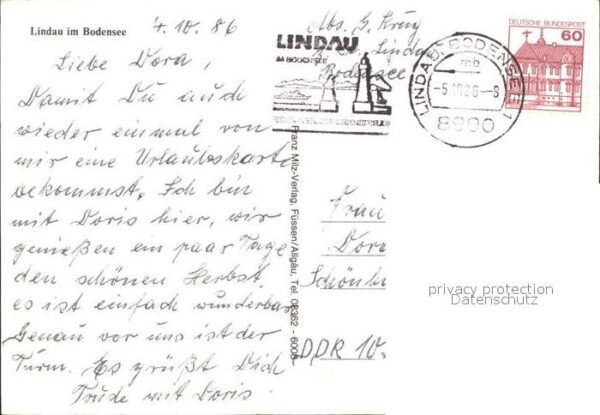 Lindau im Bodensee
4.10.86
Liebe Dora,
Damit Du auch
wieder einmal von
mir eine Urlaubskarte
bekommst. Ich bin
mit Doris hier, wir
genießen ein paar Tage
den schönen Herbst,
es ist einfach wunderbar
Genau vor uns ist der
Turm. Es grüßt Dich
Trude mit Doris.
Franz Milz-Verlag, Füssen/Allgäu, Tel. 08362 - 6008
Abs. G. Krug
Lindau
Bodensee
LINDAU
IM BODENSEE
LINDAU, BODENSEE 1
mb
-5.10.86-8
8990
DEUTSCHE BUNDESPOST
60
Frau
Dora
Schön
DDR 10-
privacy protection
Datenschutz